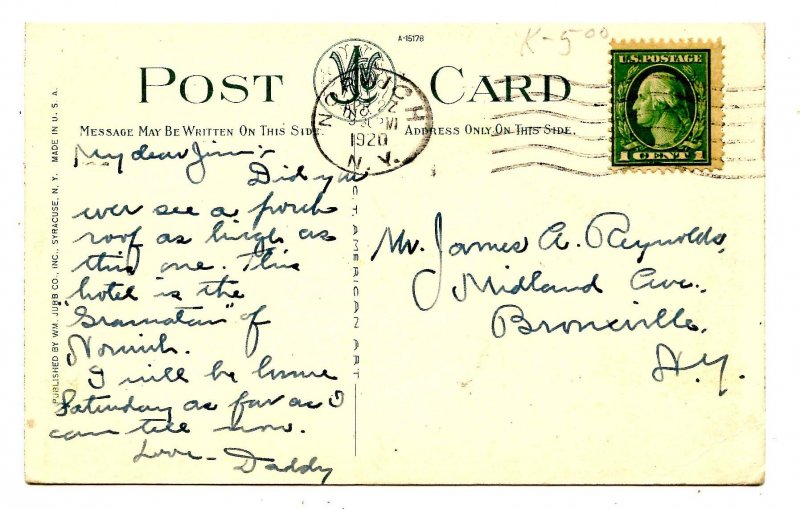 A-15178
K-500
POST CARD
MESSAGE MAY BE WRITTEN ON THIS SIDE.
ADDRESS ONLY ON THIS SIDE.
NORWICH
1920
N.Y.
U.S. POSTAGE
1 CENT 1
My dear Jim:-
Did you
ever see a porch
roof as high as
this one. This
hotel is the
"Gramatan" of
Norwich.
I will be home
Saturday as far as I
can tell now.
Love - Daddy
Mr. James A. Reynolds,
Midland Ave.,
Bronxville,
N.Y.
PUBLISHED BY WM. JUBB CO., INC., SYRACUSE, N. Y. MADE IN U. S. A.
C.T. AMERICAN ART